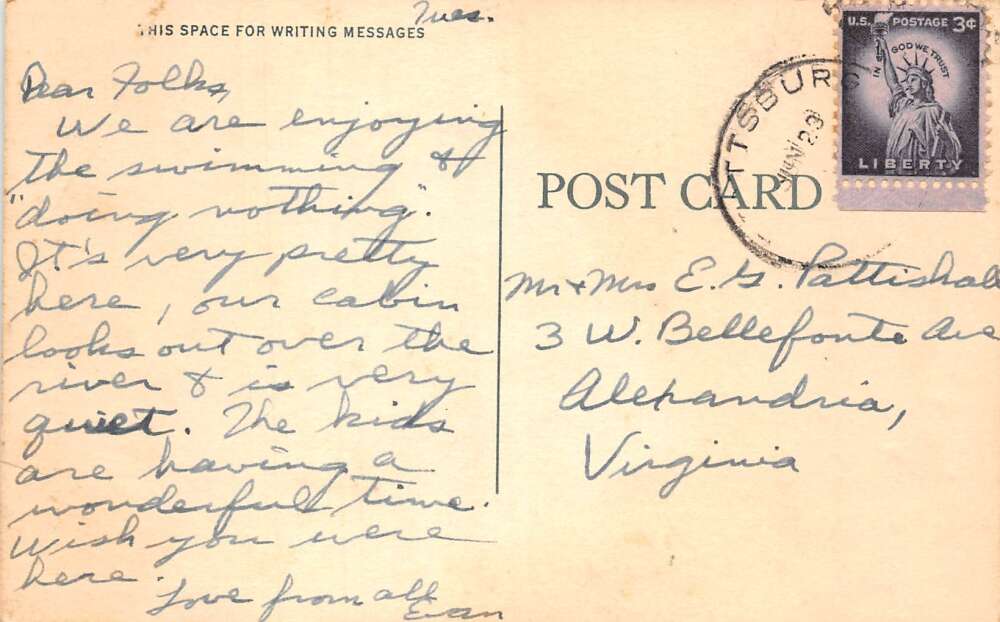 Tues.
THIS SPACE FOR WRITING MESSAGES
Dear Folks,
We are enjoying
the swimming &
"doing nothing".
It's very pretty
here, our cabin
looks out over the
river & is very
quiet. The kids
are having a
wonderful time.
Wish you were
here.
Love from all
POST CARD
TTSBURG
JUN 23
U.S. POSTAGE 3¢
IN GOD WE TRUST
LIBERTY
Mr & Mrs E. G. Pattishall
3 W. Bellefonte Ave
Alexandria,
Virginia